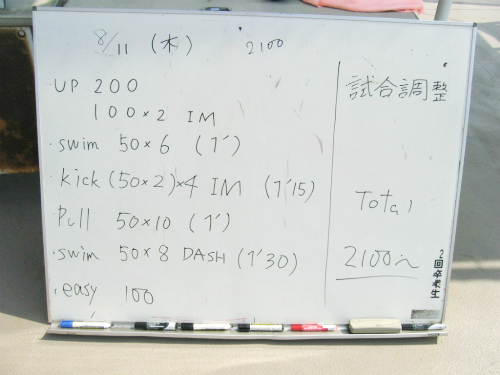 8/11 (木) 2100
UP 200
100×2 IM
・swim 50×6 (1')
kick (50×2)×4 IM (1'15)
Pull 50×10 (1')
・swim 50×8 DASH (1'30)
・easy 100
試合調整
Total
2100m